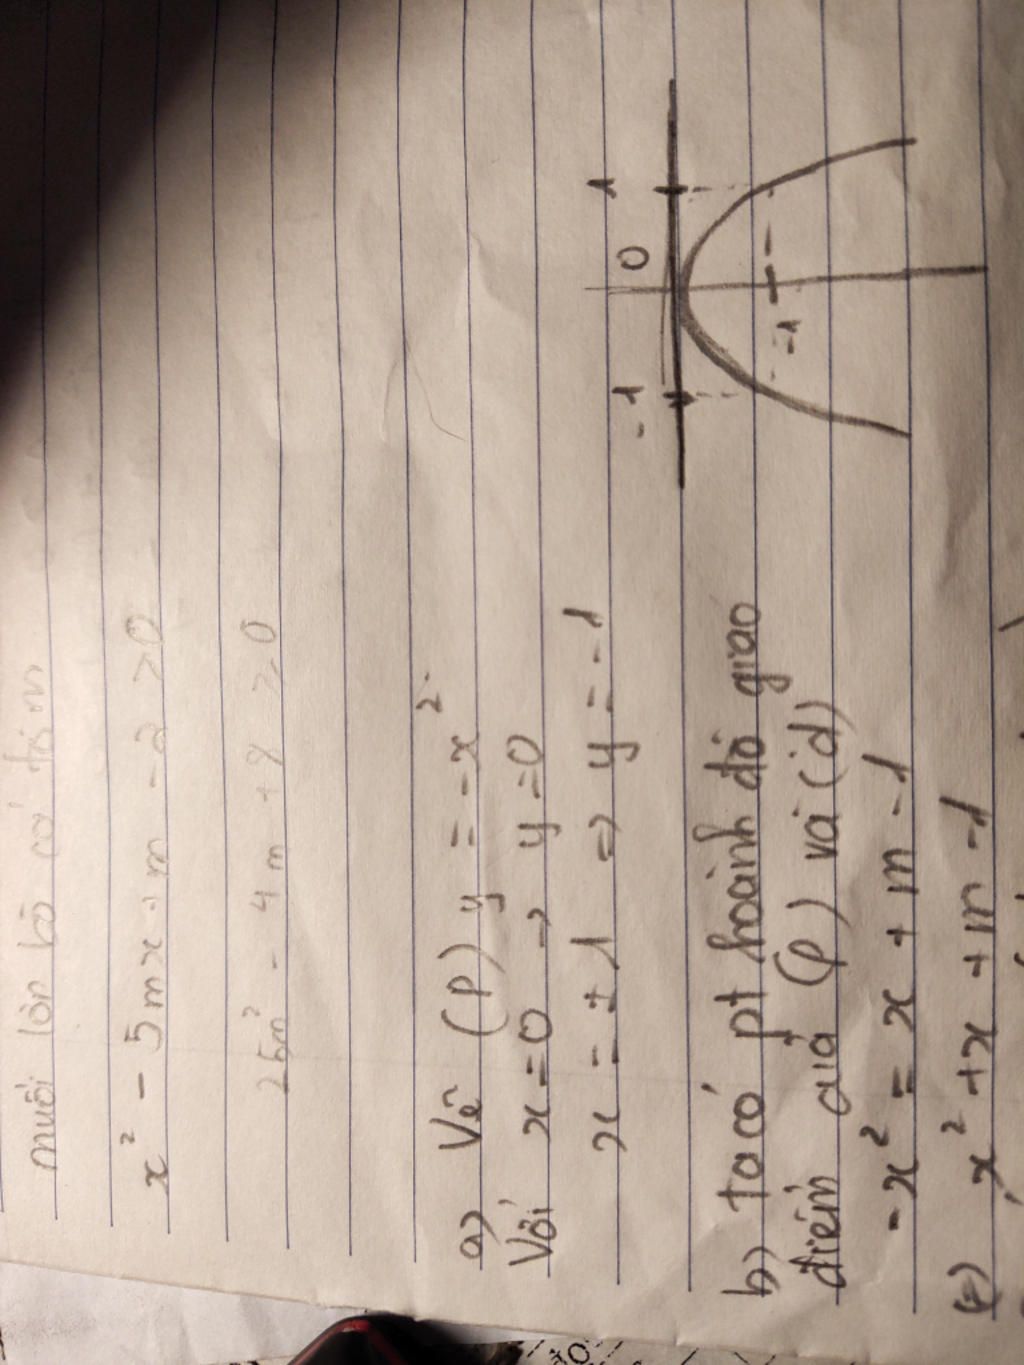 muối lớn bờ có
x² - 5mx + m - 2 > 0
25m² - 4m + 8 > 0
a) Vẽ (P) y = -x²
Với x = 0 → y = 0
x = ± 1 ⇒ y = -1
-1 0 1
-1
b) ta có pt hoành độ giao
điểm của (P) và (d)
-x² = x + m - 1
(=) x² + x + m - 1